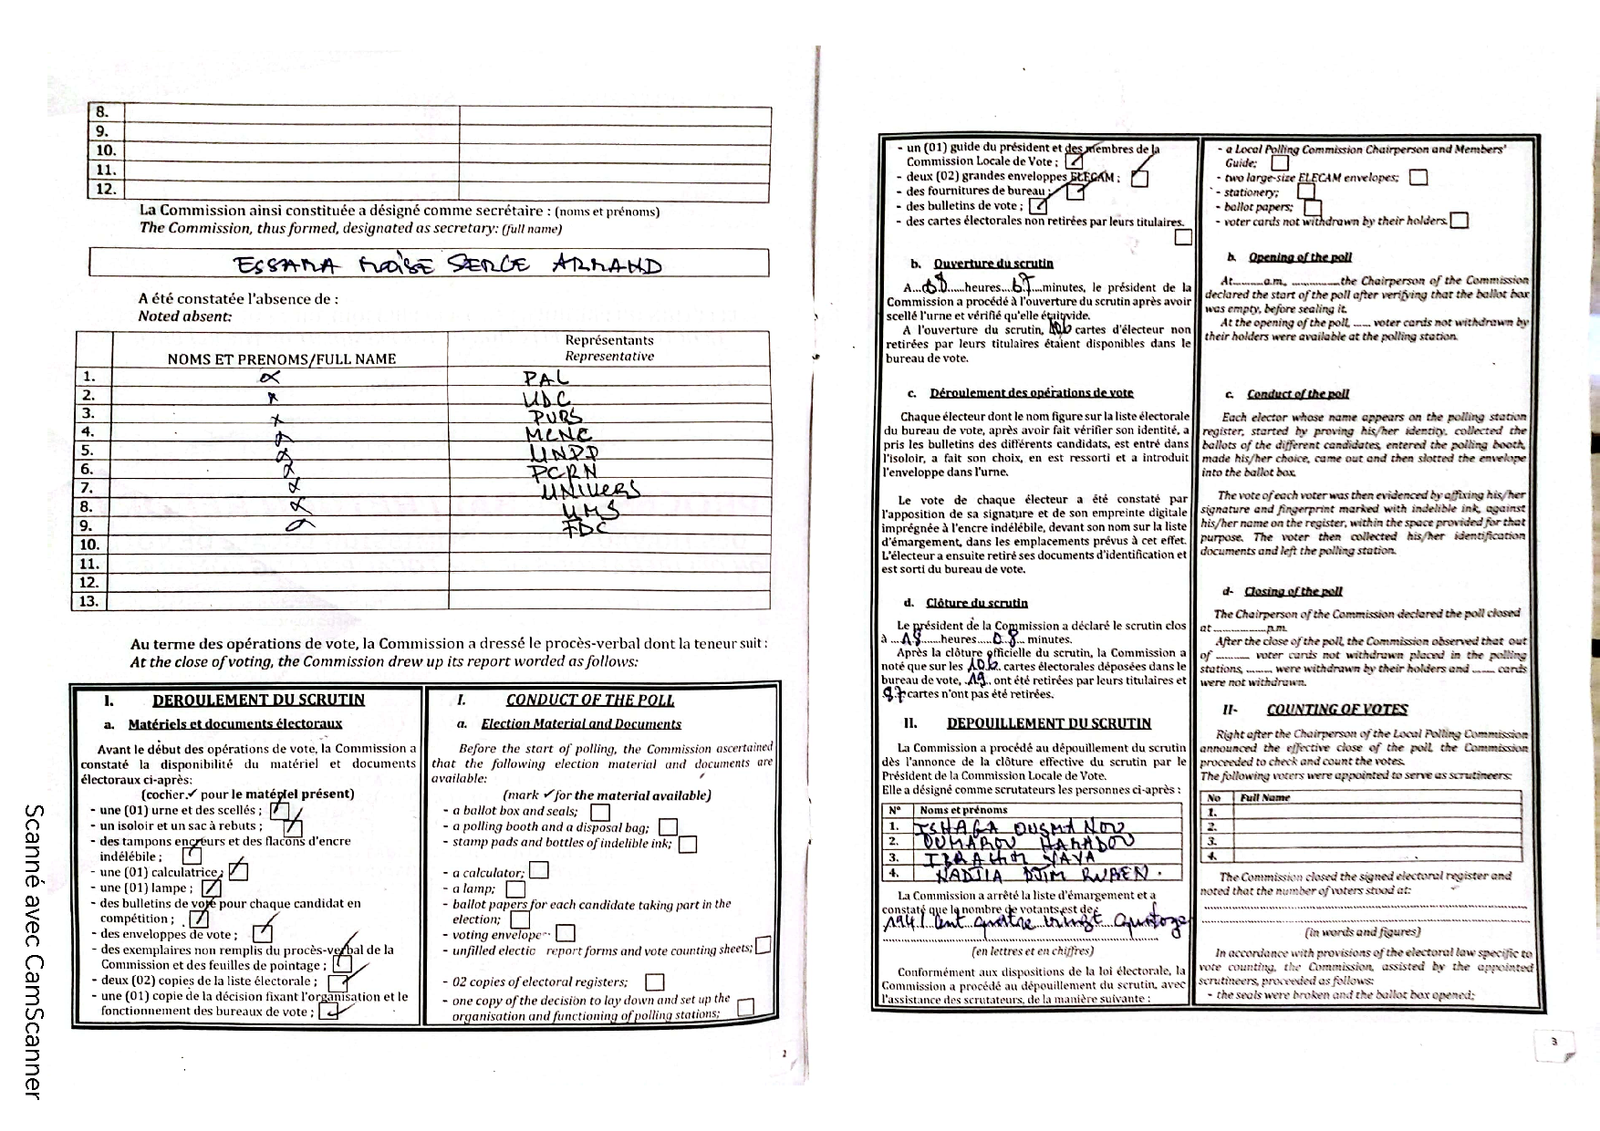 8.
9.
10.
11.
12.
La Commission ainsi constituée a désigné comme secrétaire : (noms et prénoms)
The Commission, thus formed, designated as secretary: (full name)
ESSAMA MOÏSE SERGE ARMAND
A été constatée l'absence de :
Noted absent:
NOMS ET PRENOMS/FULL NAME
Représentants
Representative
1. PAL
2. UDC
3. PURS
4. MCNC
5. UNDP
6. PCRN
7. UNIVERS
8. UMS
9. FDC
10.
11.
12.
13.
Au terme des opérations de vote, la Commission a dressé le procès-verbal dont la teneur suit :
At the close of voting, the Commission drew up its report worded as follows:
I. DEROULEMENT DU SCRUTIN
a. Matériels et documents électoraux
Avant le début des opérations de vote, la Commission a
constaté la disponibilité du matériel et documents
électoraux ci-après:
(cocher ✓ pour le matériel présent)
- une (01) urne et des scellés ;
- un isoloir et un sac à rebuts ;
- des tampons encreurs et des flacons d'encre
indélébile ;
- une (01) calculatrice ;
- une (01) lampe ;
- des bulletins de vote pour chaque candidat en
compétition ;
- des enveloppes de vote ;
- des exemplaires non remplis du procès-verbal de la
Commission et des feuilles de pointage ;
- deux (02) copies de la liste électorale ;
- une (01) copie de la décision fixant l'organisation et le
fonctionnement des bureaux de vote ;
I. CONDUCT OF THE POLL
a. Election Material and Documents
Before the start of polling, the Commission ascertained
that the following election material and documents are
available:
(mark ✓ for the material available)
- a ballot box and seals;
- a polling booth and a disposal bag;
- stamp pads and bottles of indelible ink;
- a calculator;
- a lamp;
- ballot papers for each candidate taking part in the
election;
- voting envelope
- unfilled electic report forms and vote counting sheets;
- 02 copies of electoral registers;
- one copy of the decision to lay down and set up the
organisation and functioning of polling stations;
- un (01) guide du président et des membres de la
Commission Locale de Vote ;
- deux (02) grandes enveloppes ELECAM ;
- des fournitures de bureau ;
- des bulletins de vote ;
- des cartes électorales non retirées par leurs titulaires.
b. Ouverture du scrutin
A...08......heures...67..minutes, le président de la
Commission a procédé à l'ouverture du scrutin après avoir
scellé l'urne et vérifié qu'elle était vide.
A l'ouverture du scrutin, 106 cartes d'électeur non
retirées par leurs titulaires étaient disponibles dans le
bureau de vote.
c. Déroulement des opérations de vote
Chaque électeur dont le nom figure sur la liste électorale
du bureau de vote, après avoir fait vérifier son identité, a
pris les bulletins des différents candidats, est entré dans
l'isoloir, a fait son choix, en est ressorti et a introduit
l'enveloppe dans l'urne.
Le vote de chaque électeur a été constaté par
l'apposition de sa signature et de son empreinte digitale
imprégnée à l'encre indélébile, devant son nom sur la liste
d'émargement, dans les emplacements prévus à cet effet.
L'électeur a ensuite retiré ses documents d'identification et
est sorti du bureau de vote.
d. Clôture du scrutin
Le président de la Commission a déclaré le scrutin clos
à ...18......heures.....08... minutes.
Après la clôture officielle du scrutin, la Commission a
noté que sur les 106. cartes électorales déposées dans le
bureau de vote, .19.. ont été retirées par leurs titulaires et
87 cartes n'ont pas été retirées.
II. DEPOUILLEMENT DU SCRUTIN
La Commission a procédé au dépouillement du scrutin
dès l'annonce de la clôture effective du scrutin par le
Président de la Commission Locale de Vote.
Elle a désigné comme scrutateurs les personnes ci-après :
N° Noms et prénoms
1. ISHAGA OUSMANOU
2. OUMAROU HAMADOU
3. IBRAHIM YAYA
4. NADJIA DJIM RUBEN.
La Commission a arrêté la liste d'émargement et a
constaté que la nombre de votants est de
194 / Cent quatre vingt quatorze
(en lettres et en chiffres)
Conformément aux dispositions de la loi électorale, la
Commission a procédé au dépouillement du scrutin, avec
l'assistance des scrutateurs, de la manière suivante :
- a Local Polling Commission Chairperson and Members'
Guide;
- two large-size ELECAM envelopes;
- stationery;
- ballot papers;
- voter cards not withdrawn by their holders.
b. Opening of the poll
At............a.m, ...............the Chairperson of the Commission
declared the start of the poll after verifying that the ballot box
was empty, before sealing it.
At the opening of the poll, ...... voter cards not withdrawn by
their holders were available at the polling station.
c. Conduct of the poll
Each elector whose name appears on the polling station
register, started by proving his/her identity, collected the
ballots of the different candidates, entered the polling booth,
made his/her choice, came out and then slotted the envelope
into the ballot box.
The vote of each voter was then evidenced by affixing his/her
signature and fingerprint marked with indelible ink, against
his/her name on the register, within the space provided for that
purpose. The voter then collected his/her identification
documents and left the polling station.
d- Closing of the poll
The Chairperson of the Commission declared the poll closed
at ..................p.m.
After the close of the poll, the Commission observed that out
of ........... voter cards not withdrawn placed in the polling
stations, ........ were withdrawn by their holders and ....... cards
were not withdrawn.
II- COUNTING OF VOTES
Right after the Chairperson of the Local Polling Commission
announced the effective close of the poll, the Commission
proceeded to check and count the votes.
The following voters were appointed to serve as scrutineers:
No Full Name
1.
2.
3.
4.
The Commission closed the signed electoral register and
noted that the number of voters stood at:
(in words and figures)
In accordance with provisions of the electoral law specific to
vote counting, the Commission, assisted by the appointed
scrutineers, proceeded as follows:
- the seals were broken and the ballot box opened;
3
Scanné avec CamScanner